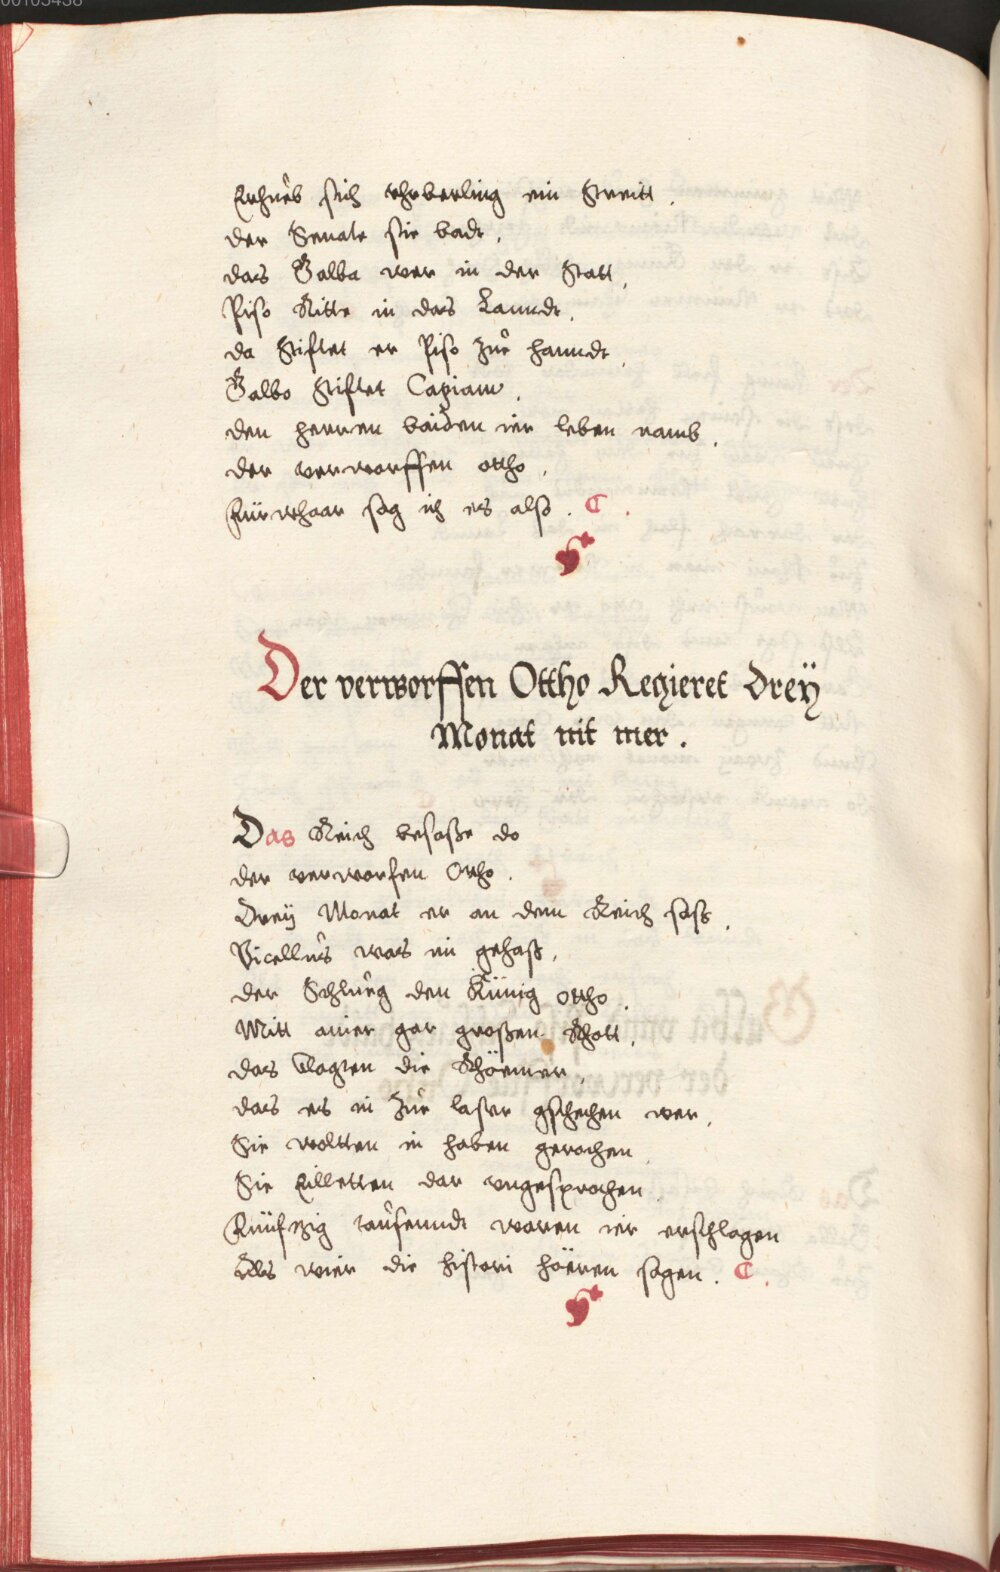 00103438
Erhueb sich vrberling ein Streitt.
der Senate sie badt,
das Galba wer in der Statt,
Piso Ritte in das Lanndt.
da Stifftet er Piso zue hanndt,
Galbo Stifftet
den herren baiden ier leben namb.
der verworffen ottho,
Fürwhaar sag ich es also. C.
Der verworffen Ottho Regieret drey
Monat nit mer.
Das Reich besasse do
der verworfen Ottho.
Drey Monat er an dem Reich sass.
Vitellus was im gehass,
der Schlueg den Künig ottho,
Mitt ainer gar grossen Rhott,
das Clagten die Rhöemer,
das es in zue laster gschechen wer,
Sie woltten in haben gerochen
Sie Eilletten dar vngesprochen
Fünfzig tausenndt waren ier erschlagen
Als wier die histori hören sagen. C.